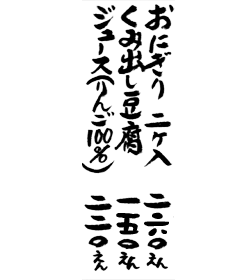 おにぎり 二ケ入 二六〇えん
くみ出し豆腐 一五〇えん
ジュース(りんご100%) 二二〇えん